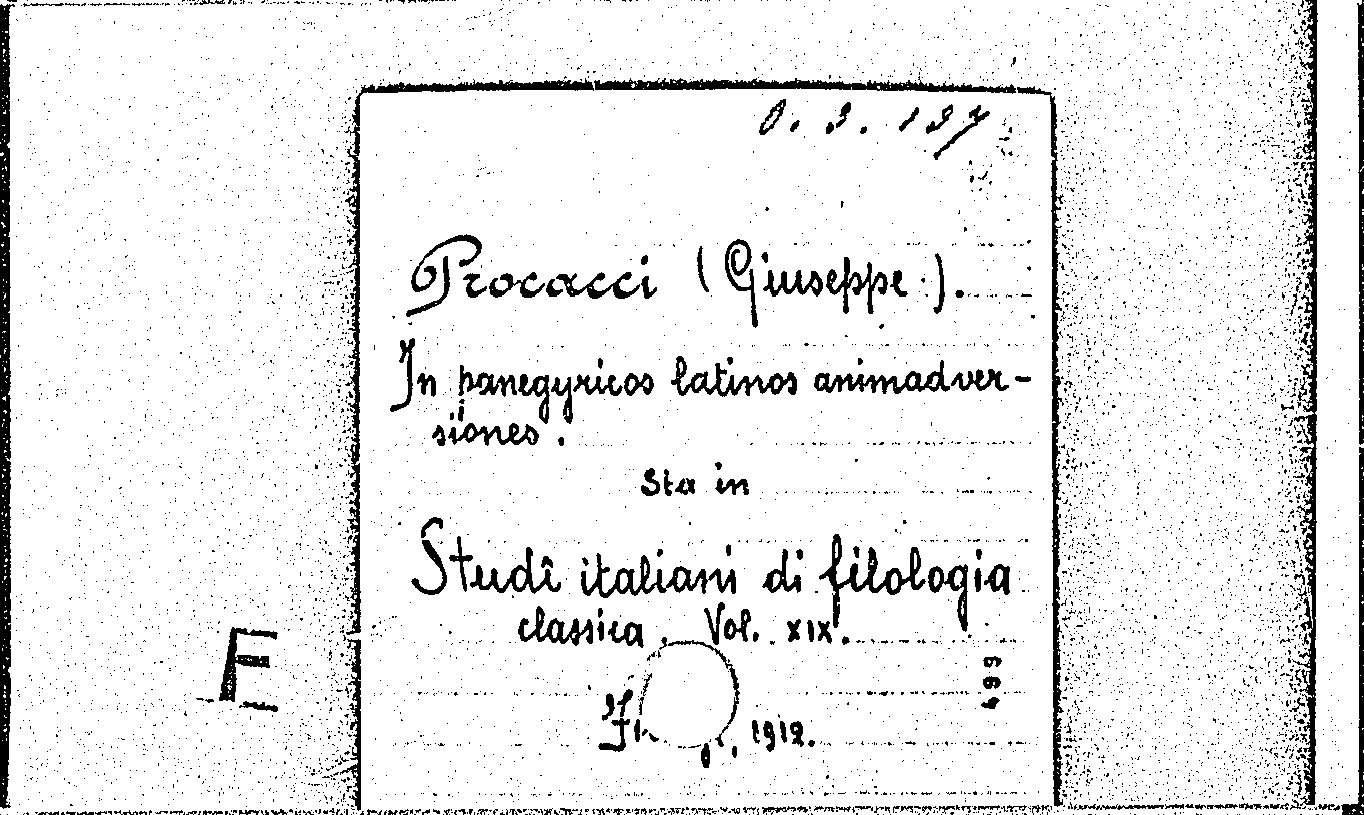 O. 3. 137
Procacci (Giuseppe).
In panegyricos latinos animadver-
siones.
Sta in
Studî italiani di filologia
classica. Vol. XIX.
1912.
499
E